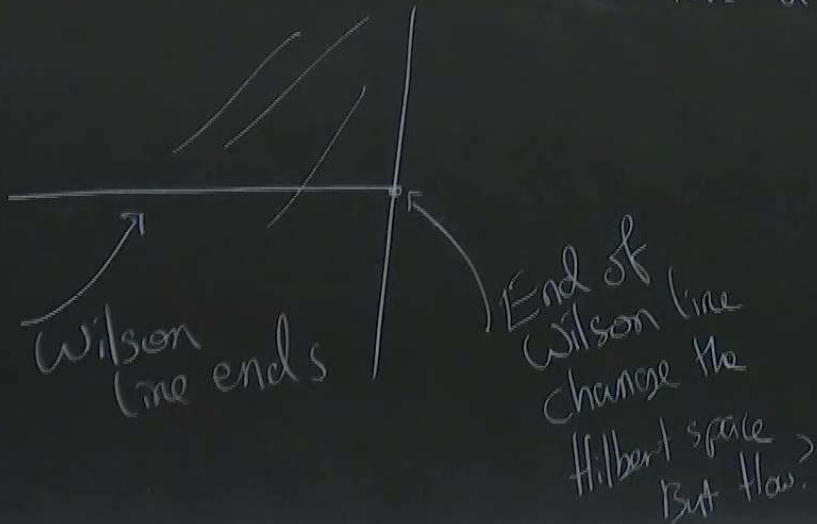 Wilson
line ends
End of
Wilson line
change the
Hilbert space
But How?